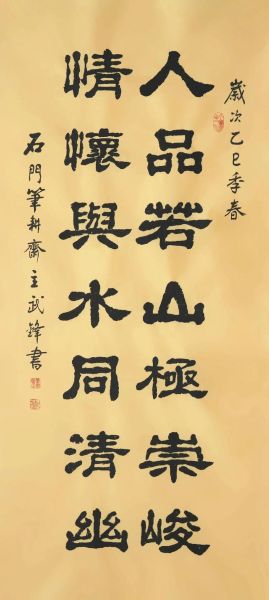 歲次乙巳季春
人品若山極崇峻
情懷與水同清幽
石門筆耕齋主武鋒書